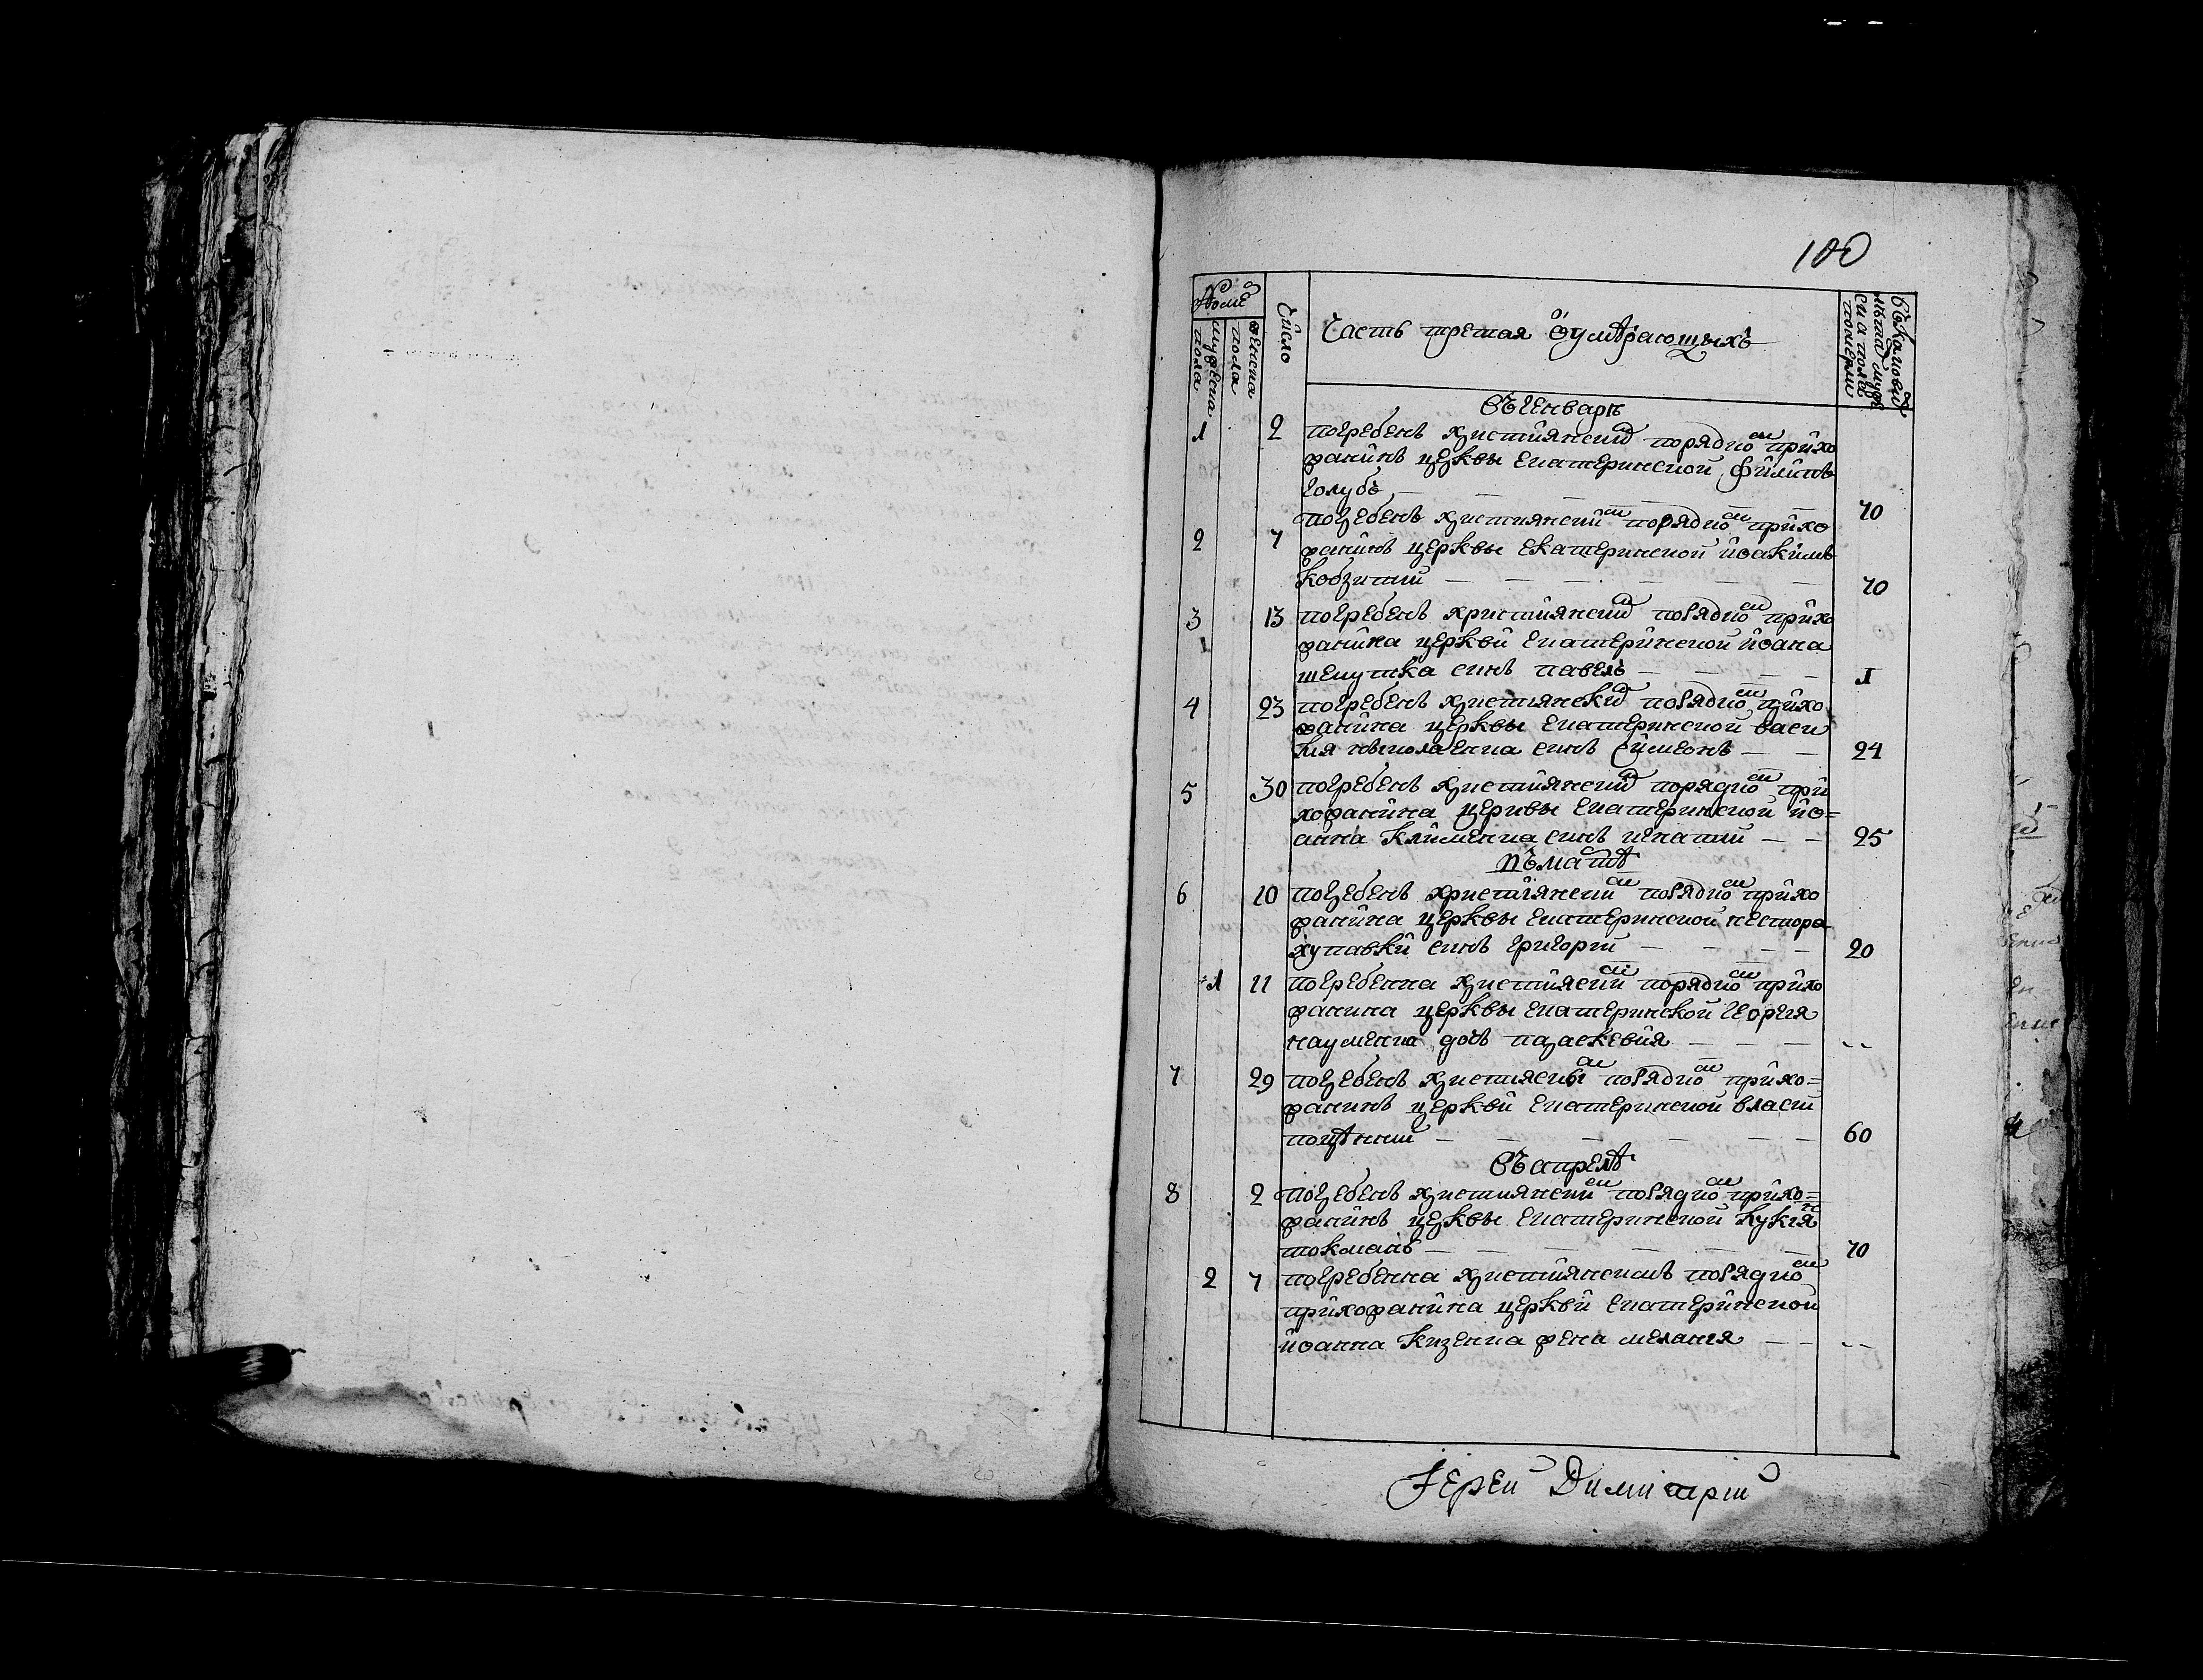 100
Номе
мужеска пола
женска пола
Число
Часть третая о умѣрающыхъ
въ каковы
лѣта муже
ска пола
померли
въ генварѣ
1 2 погребенъ християнски порядко прихо
жанинъ церквы екатеринской филипъ
голубъ 70
2 7 погребенъ християнски порядко прихо
жанинъ церквы екатеринской иоакимъ
кобзистий 70
3 13 погребенъ християнски порядко прихо
жанина церкви екатеринской иоана
шекутка синъ павелъ 1
4 23 погребенъ християнски порядко прихо
жанина церквы екатеринской васи
лия синъ симеонъ 24
5 30 погребенъ християнски порядко при
хожанина церквы екатеринской ио=
анна клименка синъ игнатий 25
6 10 погребенъ християнски порядко прихо
жанина церквы екатеринской нестора
хупавки синъ григорий 20
1 11 погребенна християски порядко прихо
жанина церквы екатеринской георгия
науменка дочъ параскевия
7 29 погребенъ християскы порядко прихо=
жанинъ церкви екатеринской власий
60
въ апрелѣ
8 2 погребенъ християнски порядко прихо=
жанинъ церквы екатеринской
токмань 70
2 7 погребенна християнскимъ порядко
прихожанина церкви екатеринской
иоанна кизенка жена мелания
Иерей Димитрий